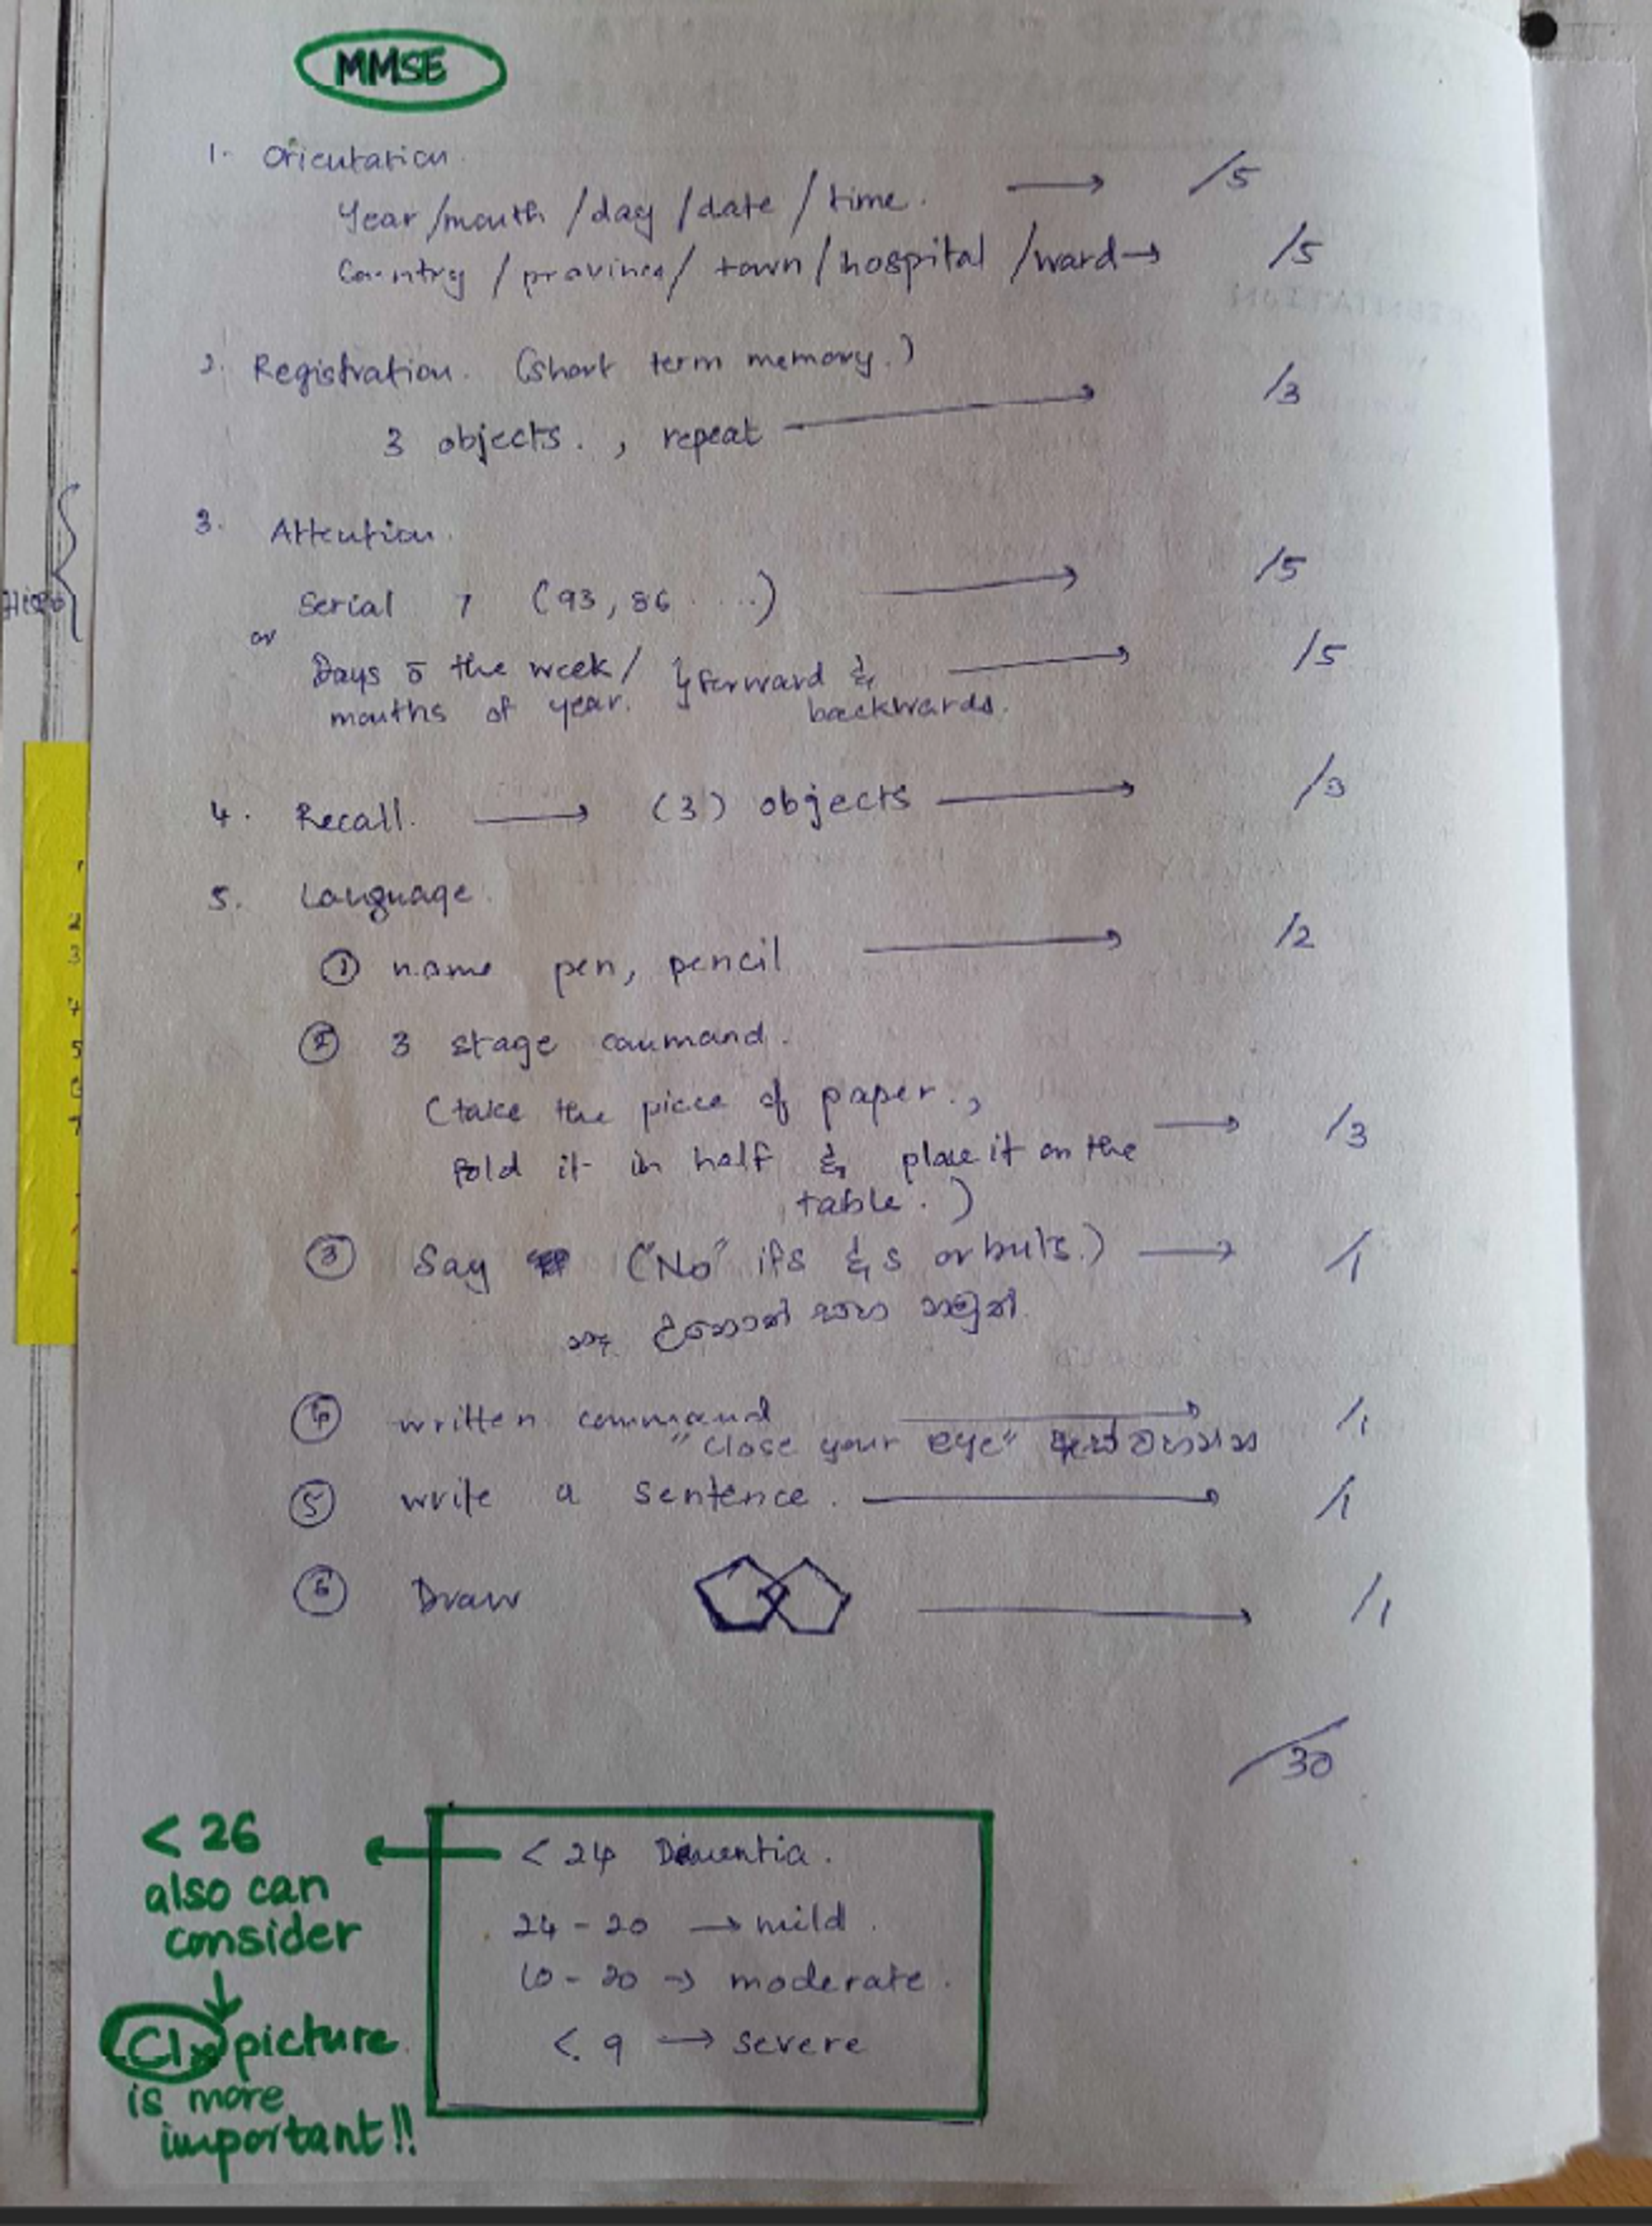 MMSE
1. Orientation.
Year/month/day/date/time. → /5
Country/province/town/hospital/ward → /5
2. Registration. (short term memory.)
3 objects., repeat → /3
3. Attention.
Serial 7 (93, 86 ....) → /5
or
Days of the week/ } forward & → /5
months of year. backwards.
4. Recall. → (3) objects → /3
5. Language.
① name pen, pencil → /2
② 3 stage command.
(take the piece of paper.,
fold it in half & place it on the → /3
table.)
③ Say ("No" ifs &s or buts.) → /1
සහ නමුත්
④ written command → /1
"close your eye" ඇස් වහන්න
⑤ write a sentence. → /1
⑥ Draw → /1
/30
< 24 Dementia.
24 - 20 → mild.
10 - 20 → moderate.
< 9 → severe
< 26
also can
consider
↓
Clx picture
is more
important!!
1
2
3
4
5
6
7